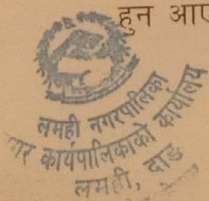 हुन आए
लमही नगरपालिका
नगर कार्यपालिकाको कार्यालय
लमही, दाङ